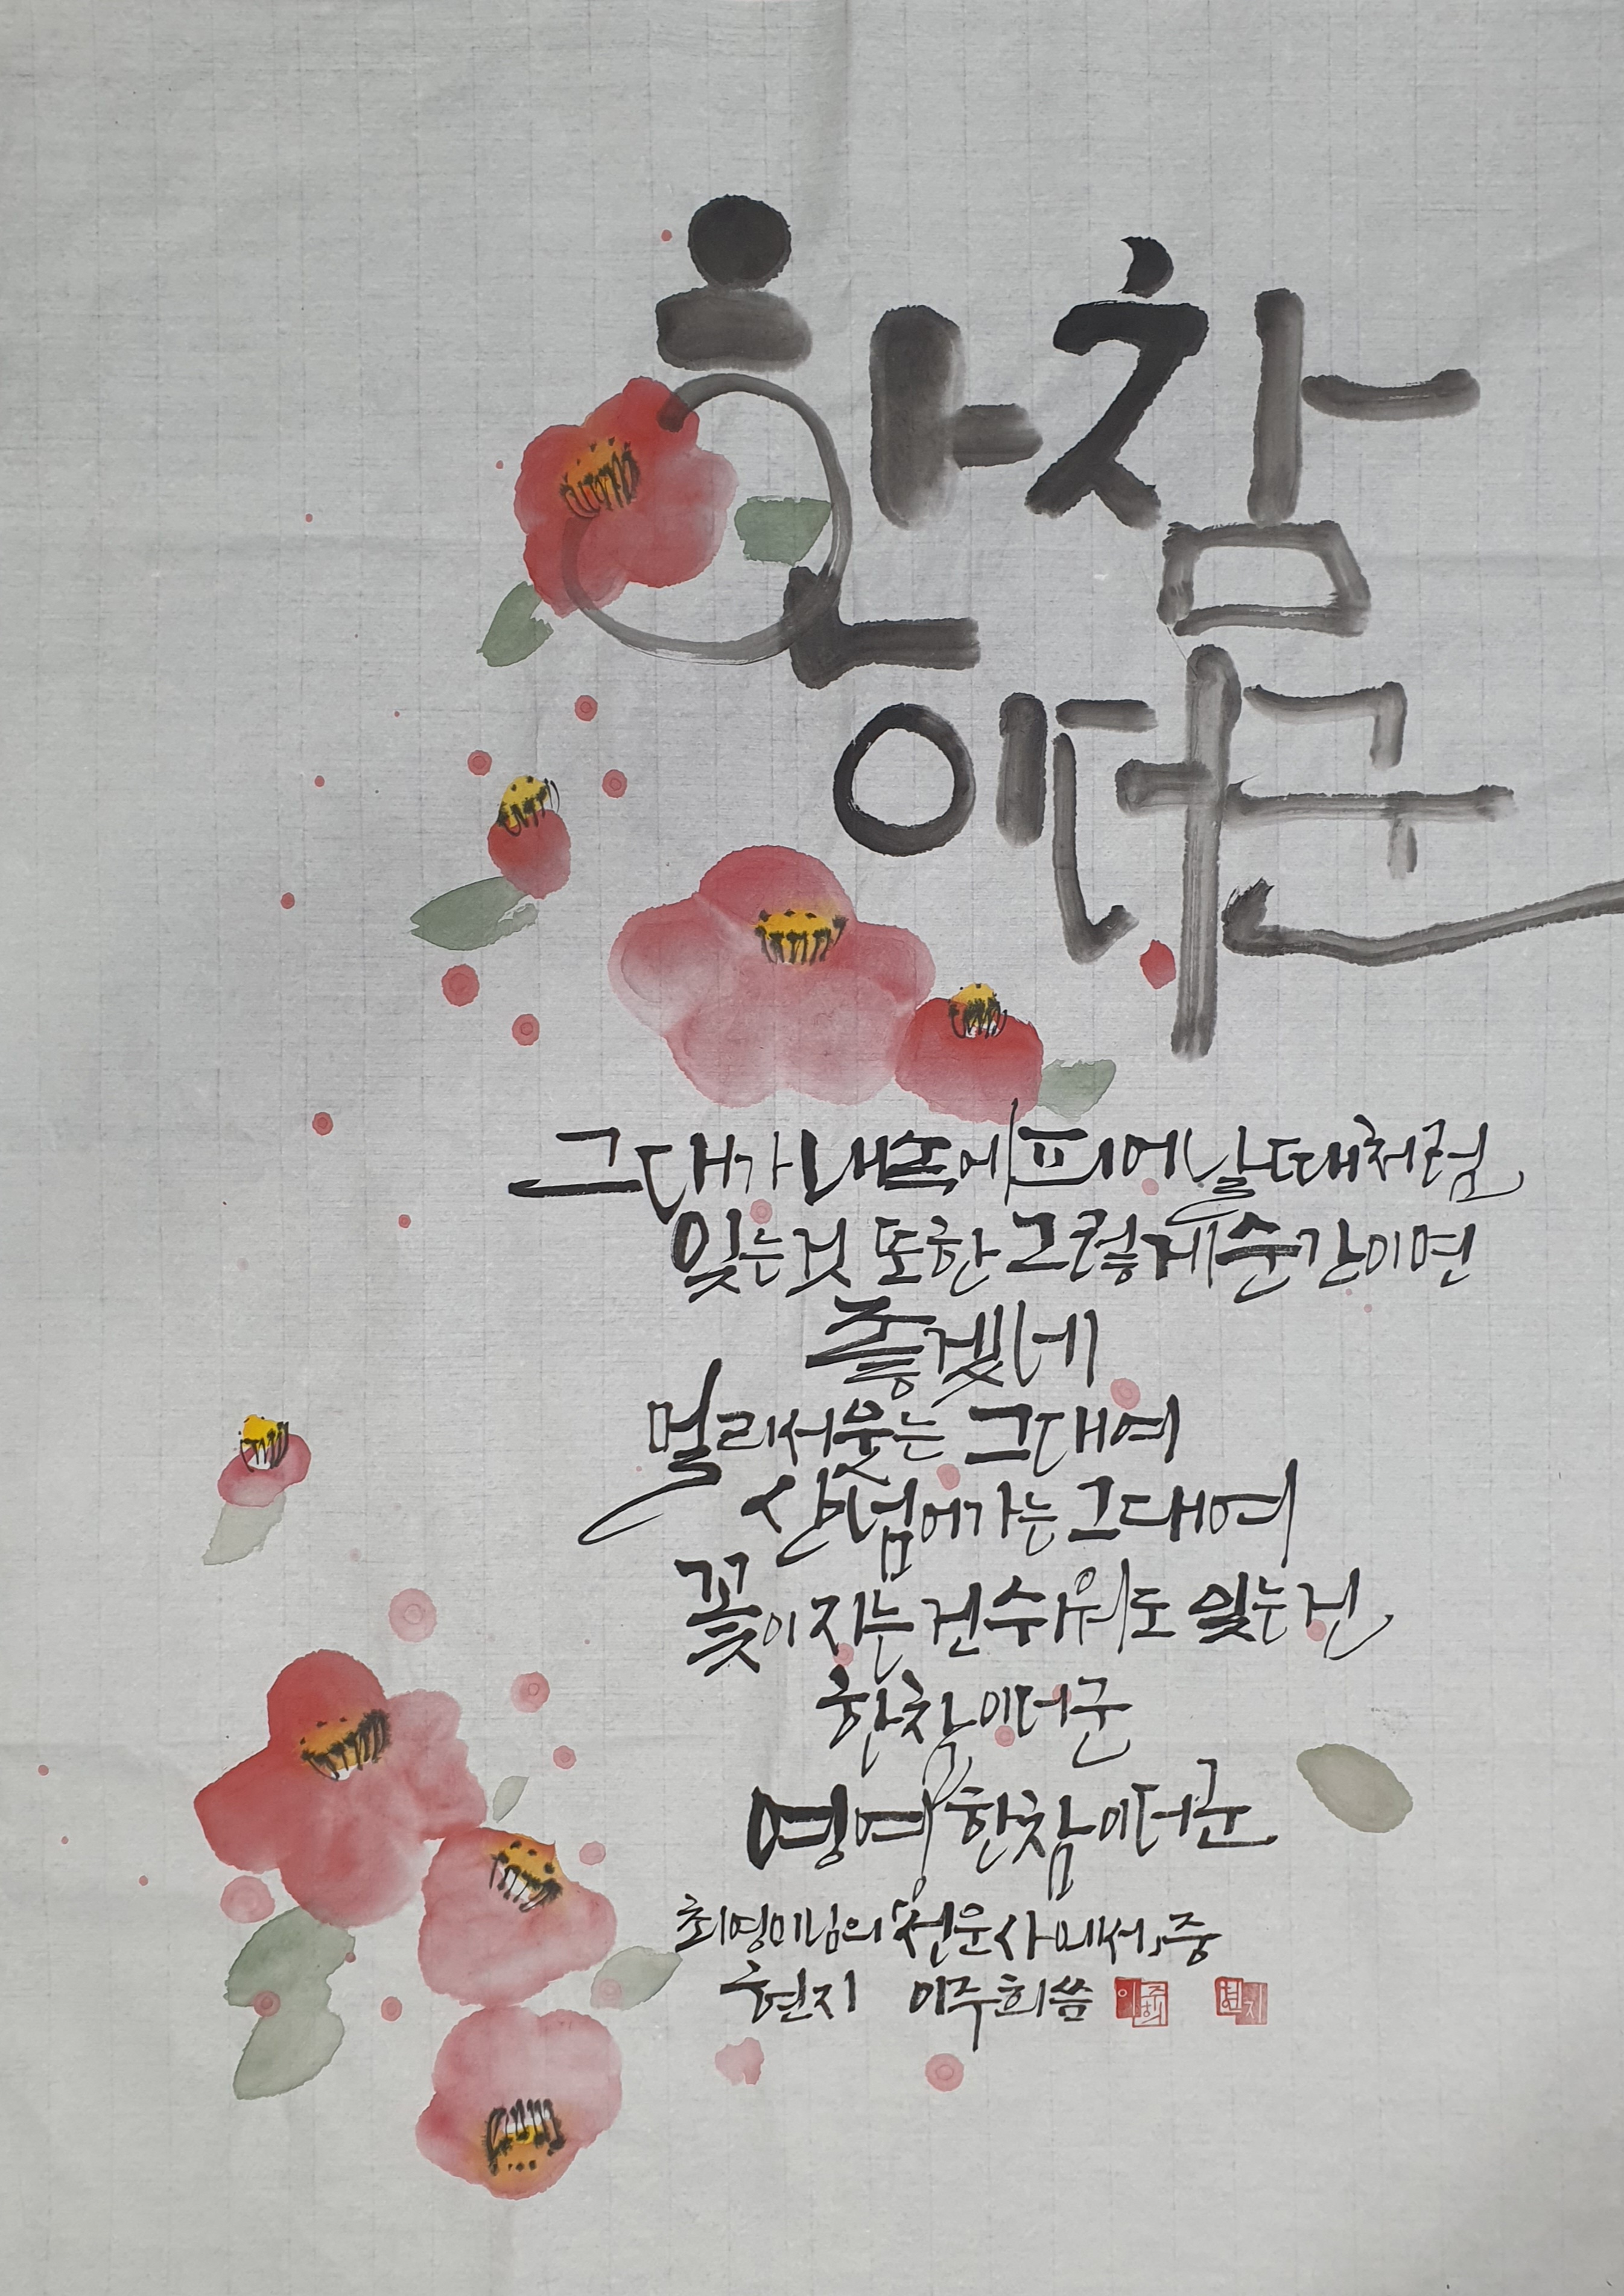 한참
이더군
그대가 내 속에 피어날 때처럼
잊는 것 또한 그렇게 순간이면
좋겠네
멀리서 웃는 그대여
산 넘어 가는 그대여
꽃이 지는 건 쉬워도 잊는 건
한참이더군
영영 한참이더군
최영미님의 「선운사에서」 중
현지 이주희 씀 이주희 현지